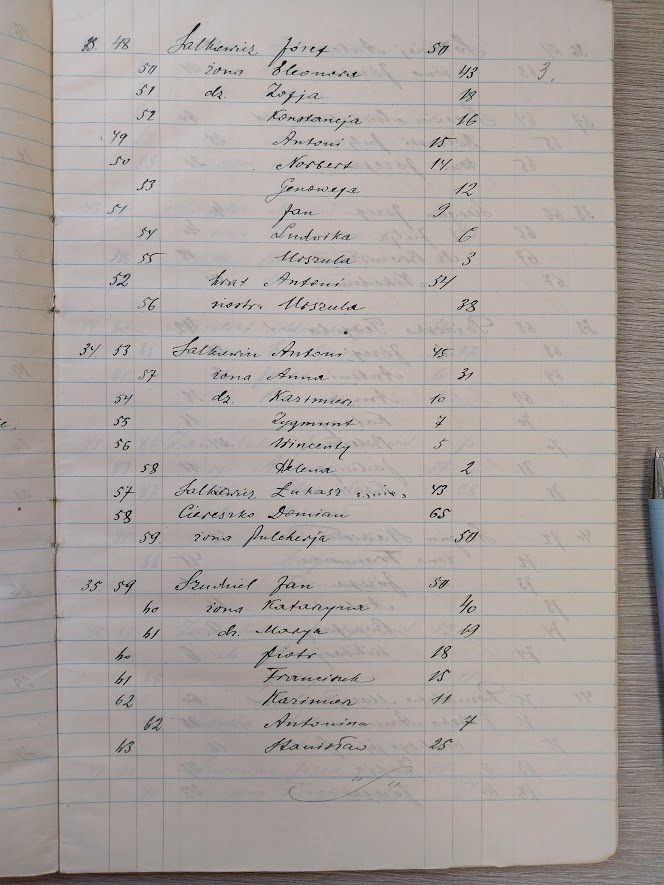 33. 48 Salkiewicz Józef 50
50 żona Eleonora 43 3.
51 dz. Zofja 18
52 Konstancja 16
49 Antoni 15
50 Norbert 14
53 Genowefa 12
51 Jan 9
54 Ludwika 6
55 Urszula 3
52 brat Antoni 54
56 siostra Urszula 38
34 53 Salkiewicz Antoni 45
57 żona Anna 31
54 dz. Kazimierz 10
55 Zygmunt 7
56 Wincenty 5
58 Helena 2
57 Salkiewicz Łukasz 43
58 Ciereszko Domian 65
59 żona Pulcherja 50
35 59 Szudziel Jan 50
60 żona Katarzyna 40
61 dz. Marya 19
60 Piotr 18
61 Franciszek 15
62 Kazimierz 11
62 Antonina 7
63 Stanisław 25